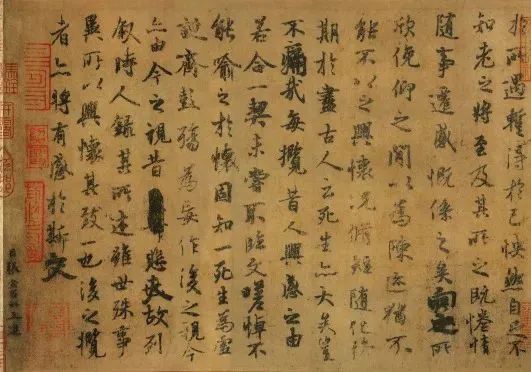 於所遇暫得於己怏然自足不
知老之將至及其所之既惓情
隨事遷感慨係之矣向之所
欣俛仰之閒以為陳迹猶不
能不以之興懷況脩短隨化終
期於盡古人云死生亦大矣豈
不痛哉每攬昔人興感之由
若合一契未嘗不臨文嗟悼不
能喻之於懷固知一死生為虛
誕齊彭殤為妄作後之視今
亦由今之視昔悲夫故列
敘時人錄其所述雖世殊事
異所以興懷其致一也後之攬
者亦將有感於斯文
臣張金界奴上進